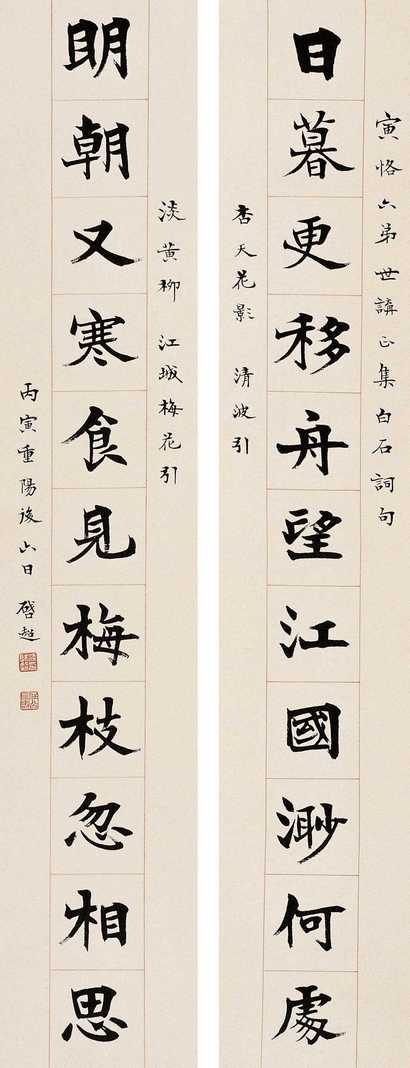 寅恪六弟世講正集白石詞句
日暮更移舟望江國渺何處
杏天花影 清波引
淡黃柳 江城梅花引
明朝又寒食見梅枝忽相思
丙寅重陽後六日 啓超